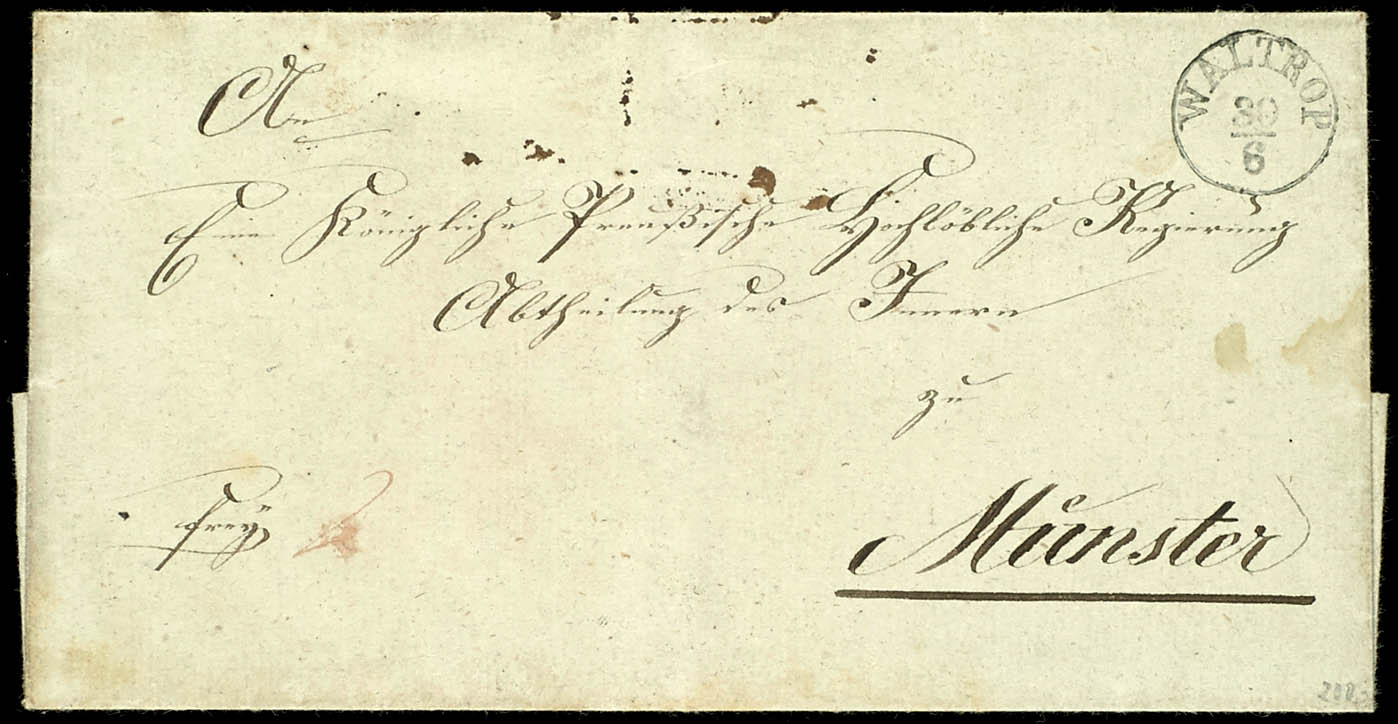 WALTROP
30
6
An
Eine Königliche Preußische Hochlöbliche Regierung
Abtheilung des Innern
zu
Münster
frey